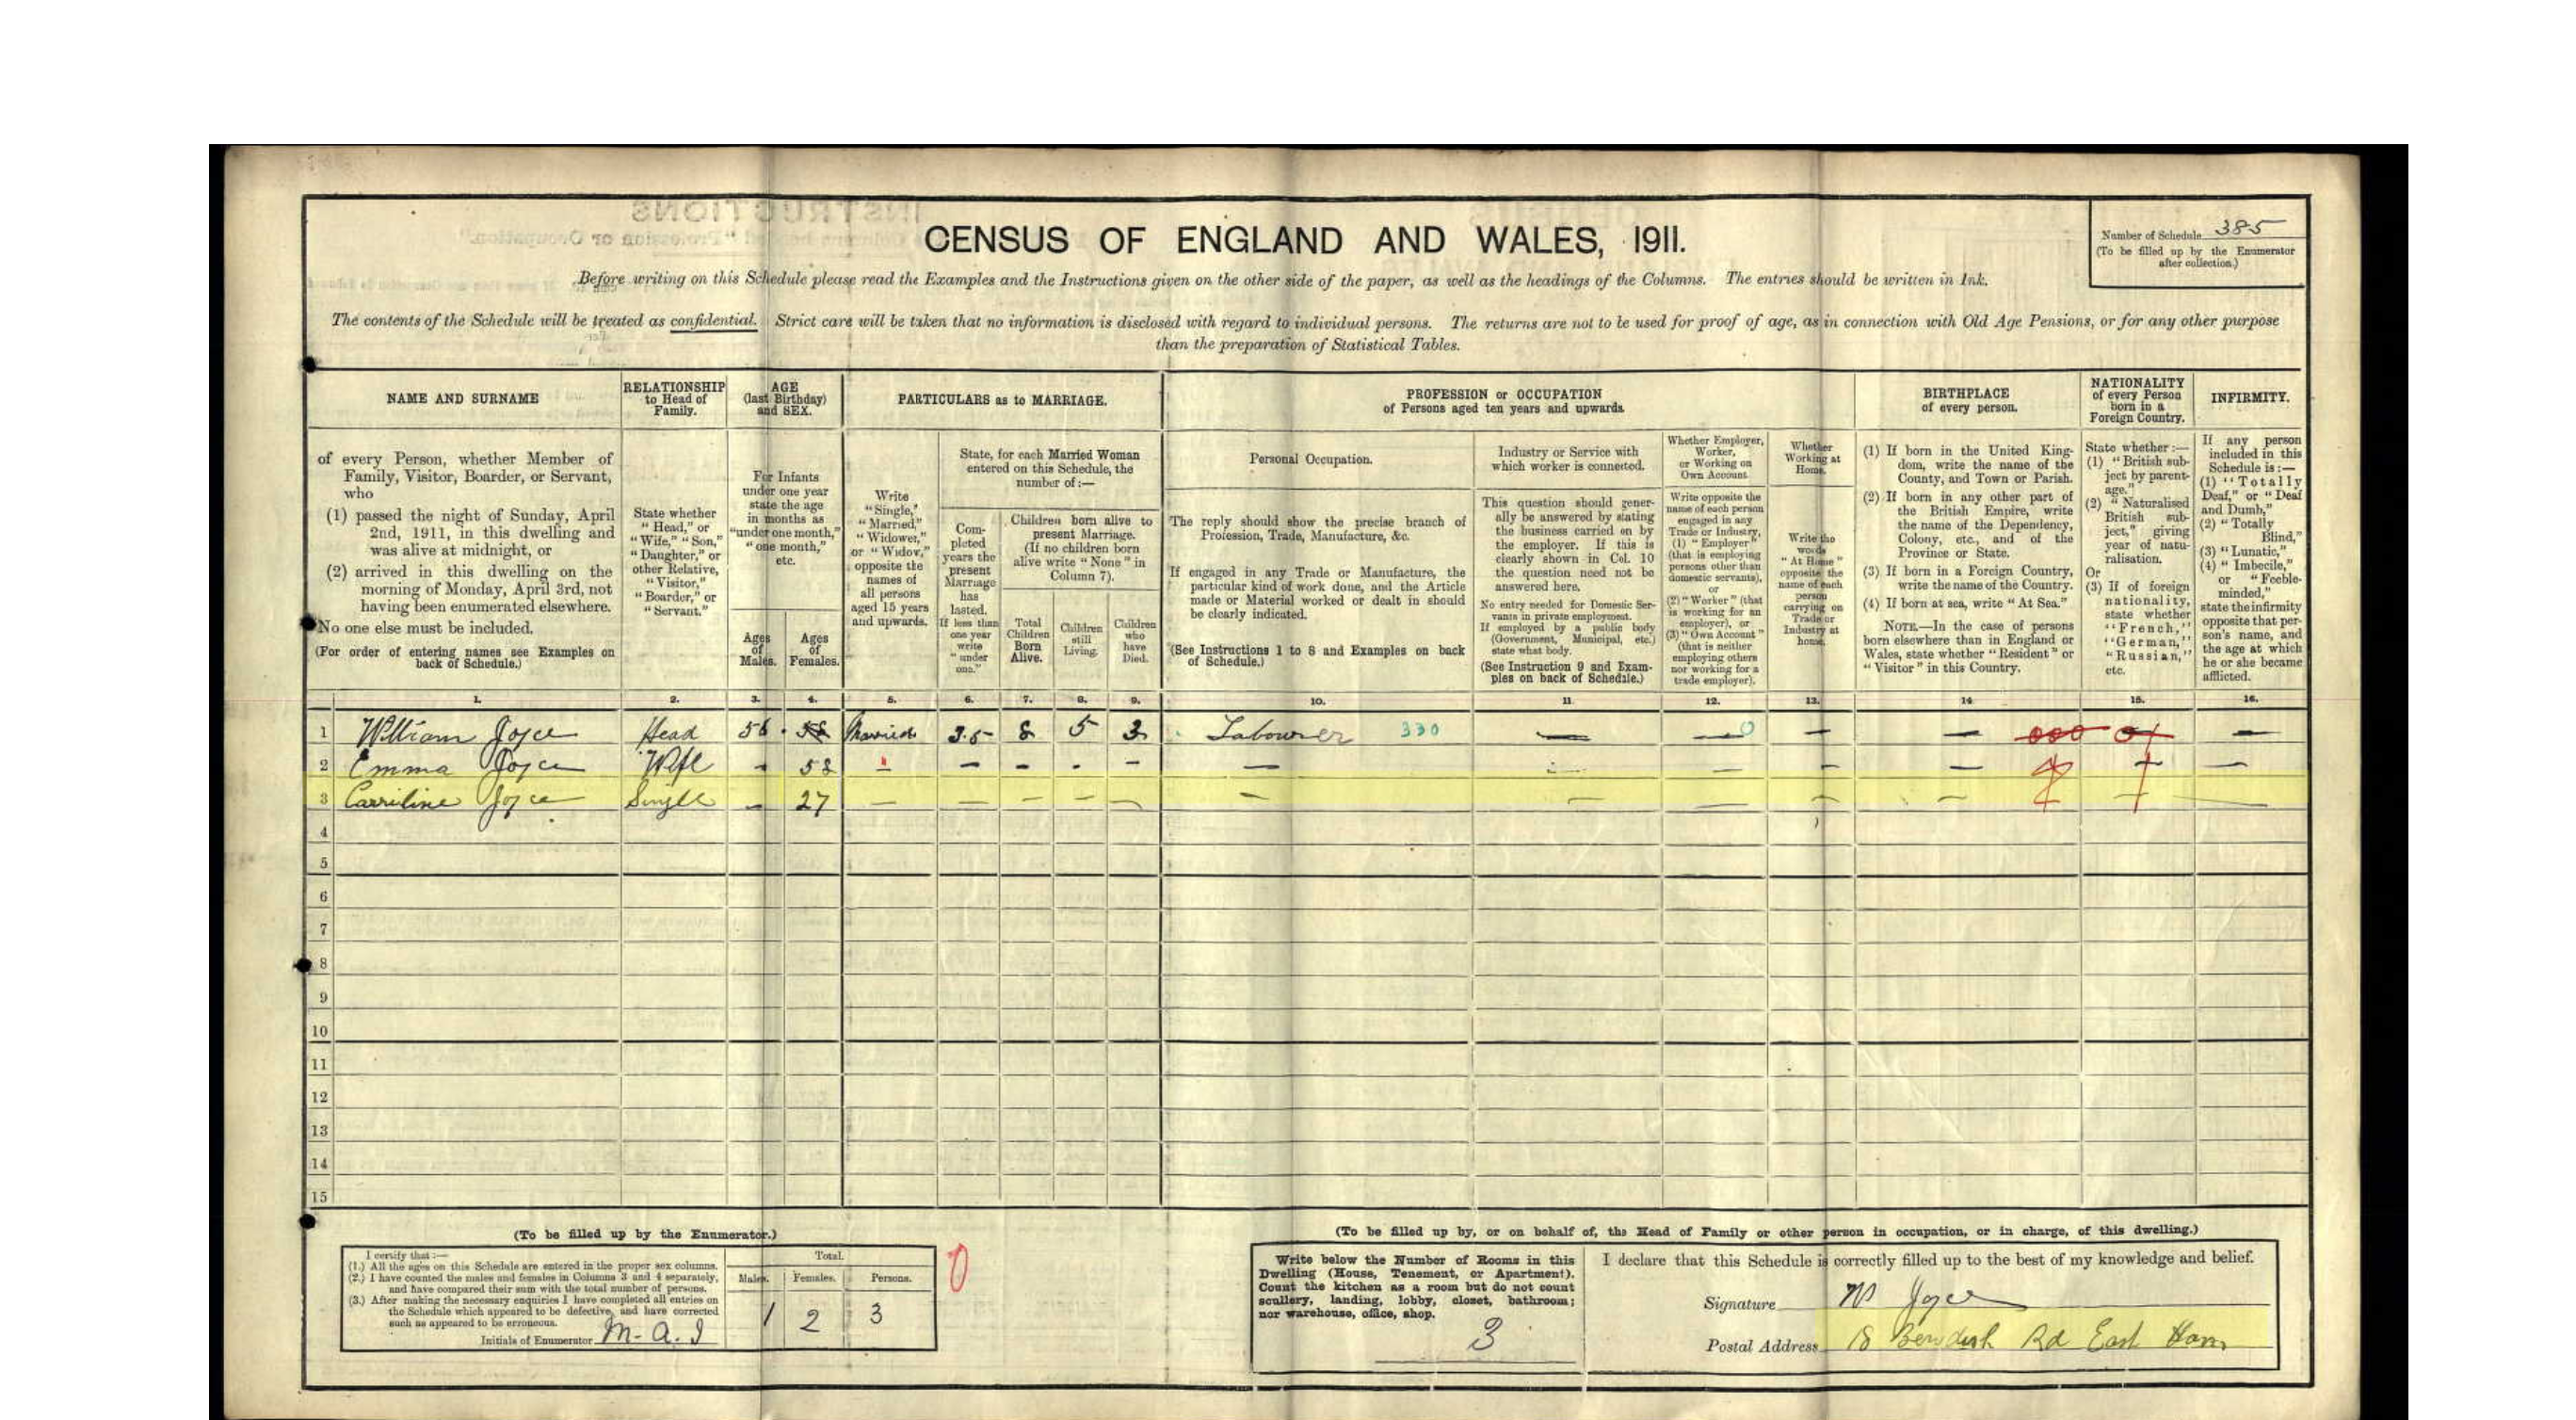 CENSUS OF ENGLAND AND WALES, 1911.
Number of Schedule 385
(To be filled up by the Enumerator
after collection.)
Before writing on this Schedule please read the Examples and the Instructions given on the other side of the paper, as well as the headings of the Columns. The entries should be written in Ink.
The contents of the Schedule will be treated as confidential. Strict care will be taken that no information is disclosed with regard to individual persons. The returns are not to be used for proof of age, as in connection with Old Age Pensions, or for any other purpose
than the preparation of Statistical Tables.
NAME AND SURNAME
of every Person, whether Member of
Family, Visitor, Boarder, or Servant,
who
(1) passed the night of Sunday, April
2nd, 1911, in this dwelling and
was alive at midnight, or
(2) arrived in this dwelling on the
morning of Monday, April 3rd, not
having been enumerated elsewhere.
No one else must be included.
(For order of entering names see Examples on
back of Schedule.)
RELATIONSHIP
to Head of
Family.
State whether
"Head," or
"Wife," "Son,"
"Daughter," or
other Relative,
"Visitor,"
"Boarder," or
"Servant."
AGE
(last Birthday)
and SEX.
For Infants
under one year
state the age
in months as
"under one month,"
"one month,"
etc.
Ages
of
Males.
Ages
of
Females.
PARTICULARS as to MARRIAGE.
Write
"Single,"
"Married,"
"Widower,"
or "Widow,"
opposite the
names of
all persons
aged 15 years
and upwards.
State, for each Married Woman
entered on this Schedule, the
number of:—
Com-
pleted
years the
present
Marriage
has
lasted.
If less than
one year
write
"under
one."
Children born alive to
present Marriage.
(If no children born
alive write "None" in
Column 7).
Total
Children
Born
Alive.
Children
still
Living.
Children
who
have
Died.
PROFESSION or OCCUPATION
of Persons aged ten years and upwards.
Personal Occupation.
The reply should show the precise branch of
Profession, Trade, Manufacture, &c.
If engaged in any Trade or Manufacture, the
particular kind of work done, and the Article
made or Material worked or dealt in should
be clearly indicated.
(See Instructions 1 to 8 and Examples on back
of Schedule.)
Industry or Service with
which worker is connected.
This question should gener-
ally be answered by stating
the business carried on by
the employer. If this is
clearly shown in Col. 10
the question need not be
answered here.
No entry needed for Domestic Ser-
vants in private employment.
If employed by a public body
(Government, Municipal, etc.)
state what body.
(See Instruction 9 and Exam-
ples on back of Schedule.)
Whether Employer,
Worker,
or Working on
Own Account.
Write opposite the
name of each person
engaged in any
Trade or Industry,
(1) "Employer"
(that is employing
persons other than
domestic servants),
or
(2) "Worker" (that
is working for an
employer), or
(3) "Own Account"
(that is neither
employing others
nor working for a
trade employer).
Whether
Working at
Home.
Write the
words
"At Home"
opposite the
name of each
person
carrying on
Trade or
Industry at
home.
BIRTHPLACE
of every person.
(1) If born in the United King-
dom, write the name of the
County, and Town or Parish.
(2) If born in any other part of
the British Empire, write
the name of the Dependency,
Colony, etc., and of the
Province or State.
(3) If born in a Foreign Country,
write the name of the Country.
(4) If born at sea, write "At Sea."
NOTE.—In the case of persons
born elsewhere than in England or
Wales, state whether "Resident" or
"Visitor" in this Country.
NATIONALITY
of every Person
born in a
Foreign Country.
State whether:—
(1) "British sub-
ject by parent-
age."
(2) "Naturalised
British sub-
ject," giving
year of natu-
ralisation.
Or
(3) If of foreign
nationality,
state whether
"French,"
"German,"
"Russian,"
etc.
INFIRMITY.
If any person
included in this
Schedule is:—
(1) "Totally
Deaf," or "Deaf
and Dumb,"
(2) "Totally
Blind,"
(3) "Lunatic,"
(4) "Imbecile,"
or "Feeble-
minded,"
state the infirmity
opposite that per-
son's name, and
the age at which
he or she became
afflicted.
1. 2. 3. 4. 5. 6. 7. 8. 9. 10. 11 12. 13. 14 15. 16.
1 William Joyce Head 56 Married 35 8 5 3 Labourer 330 — — — — —
2 Emma Joyce Wife - 58 " - - - - — — — — —
3 Carriline Joyce Single - 27 — — — — — — — — — —
4
5
6
7
8
9
10
11
12
13
14
15
(To be filled up by the Enumerator.)
I certify that:—
(1.) All the ages on this Schedule are entered in the proper sex columns.
(2.) I have counted the males and females in Columns 3 and 4 separately,
and have compared their sum with the total number of persons.
(3.) After making the necessary enquiries I have completed all entries on
the Schedule which appeared to be defective, and have corrected
such as appeared to be erroneous.
Initials of Enumerator M. A. J
Total.
Males. Females. Persons.
1 2 3
0
(To be filled up by, or on behalf of, the Head of Family or other person in occupation, or in charge, of this dwelling.)
Write below the Number of Rooms in this
Dwelling (House, Tenement, or Apartment).
Count the kitchen as a room but do not count
scullery, landing, lobby, closet, bathroom;
nor warehouse, office, shop.
3
I declare that this Schedule is correctly filled up to the best of my knowledge and belief.
Signature W Joyce
Postal Address 18 Bendish Rd East Ham